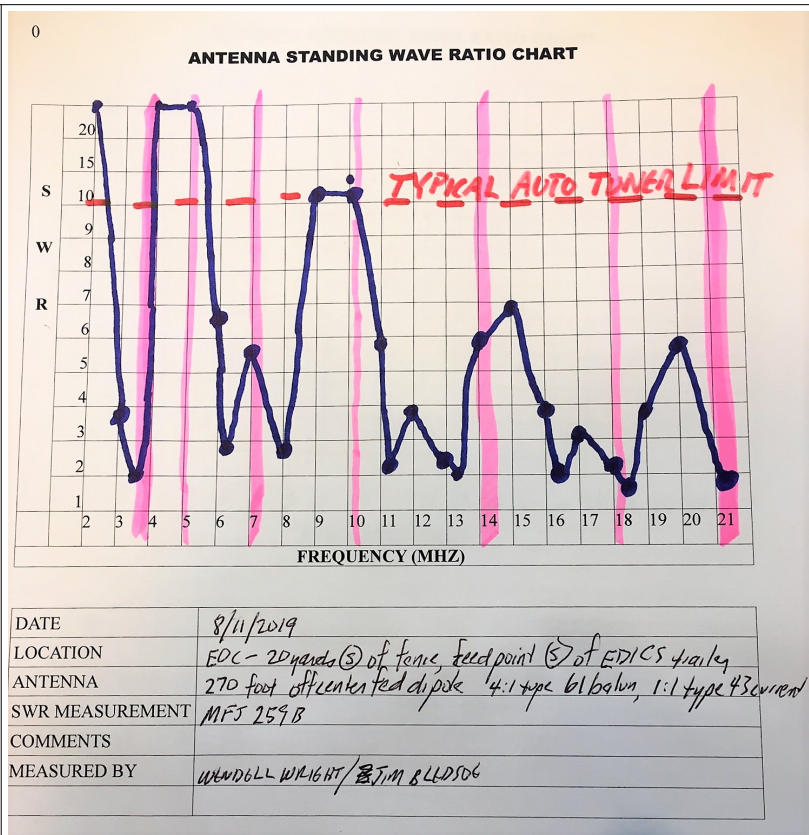 0
ANTENNA STANDING WAVE RATIO CHART
20
15
TYPICAL AUTO TUNER LIMIT
S
10
9
W
8
R
7
6
5
4
3
2
1
2 3 4 5 6 7 8 9 10 11 12 13 14 15 16 17 18 19 20 21
FREQUENCY (MHZ)
DATE 8/11/2019
LOCATION EOC - 20 yards (S) of fence, feedpoint (S) of EDICS trailer
ANTENNA 270 foot offcenter fed dipole 4:1 type 61 balun, 1:1 type 43 current
SWR MEASUREMENT MFJ 259B
COMMENTS
MEASURED BY WENDELL WRIGHT/ JIM BLEDSOE